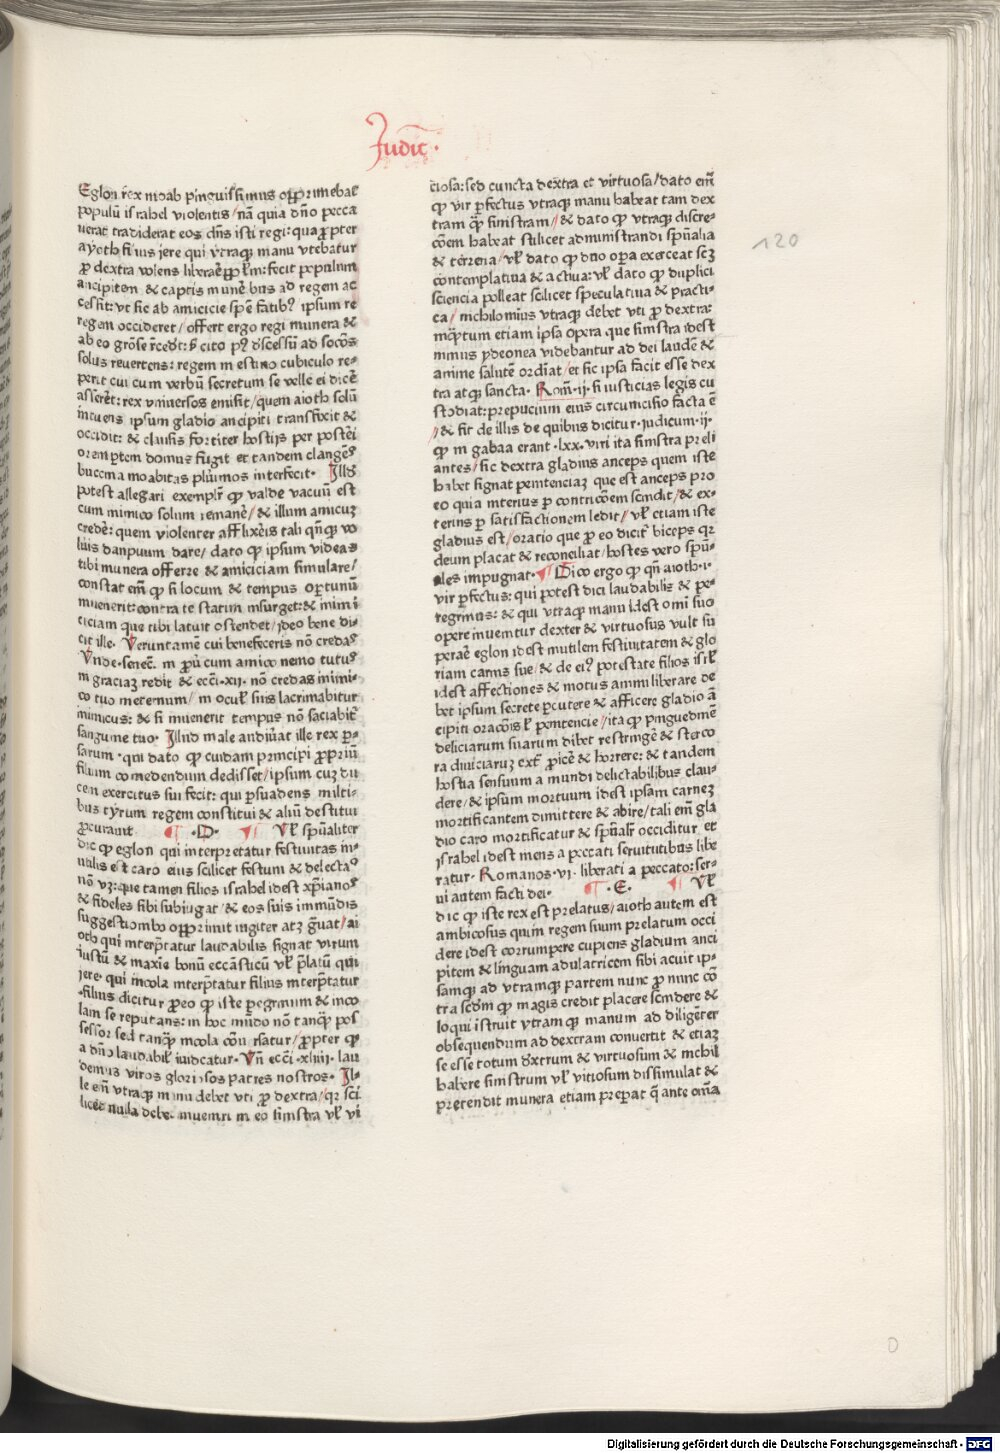 Judic̄.
120
Eglon rex moab pinguissimus opprimebat
populū israhel violentis/nā quia dño pecca
uerat tradiderat eos dn̄s isti regi: qua ꝓpter
ayoth filius jere qui vtraqꝫ manu vtebatur
ꝓ dextra volens liberare ppl̄m: fecit populum
ancipitem & captis munēbus ad regem ac
cessit: vt sic ab amicicie spē fatibꝰ ipsum re
regem occideret/offert ergo regi munera &
solus reuertens: regem in estiuo cubiculo re-
perit cui cum verbū secretum se velle ei dicē
asserēt: rex vniuersos emisit/quem aioth solū
intuens ipsum gladio ancipiti transfixit &
occidit: & clausis fortiter hostijs per posteri
orem ꝑtem domus fugit et tandem clangens
buccina moabitas plurimos interfecit. Illud
potest allegari exemplr̄ ꝙ valde vacuū est
cum inimico solum remanē/& illum amicuꝫ
credē: quem violenter afflixeris tali qn̄qꝫ vo
luis danpnum dare/dato ꝙ ipsum videas
tibi munera offerre & amiciciam simulare/
constat em̄ ꝙ si locum & tempus oportunū
inuenerit: contra te statim insurget: & inimi
ciciam que tibi latuit ostendet/ideo bene di-
cit ille. Veruntamē cui benefeceris nō credas
Vnde. senec̄. in prouerbiis cum amico nemo tutus
in graciaꝫ redit & ecci. xij. nō credas inimi-
co tuo in eternum/in oculis suis lacrimabitur
inimicus: & si inuenerit tempus nō saciabit᷑
sanguine tuo. Illud male audiuit ille rex per-
sarum. qui dato ꝙ cuidam principi ꝓpriū
filium comedendum dedisset/ipsum cuꝫ du
cem exercitus sui fecit: qui ꝑsuadens milti-
bus tyrum regem constitui & aliū destitui
ꝓcurauit ¶ .D. ¶ Vl̄ spūaliter
dic ꝙ eglon qui interpretatur festiuitas in-
utilis est caro eius scilicet festum & delectaꝰ
nō vꝫ: que tamen filios israhel idest xp̄ianos
& fideles sibi subiugat/& eos suis immūdis
suggestionibꝰ opprimit iugiter atqꝫ g̃uat/ai
oth qui interp̄tatur laudabilis signat virum
iustū & maxīe bonū eccāsticū vl̄ p̄latū qui
jere. qui incola interp̄tatur filius interp̄tatur
.filius dicitur ꝓ eo ꝙ iste peregrinum & inco
lam se reputans: in hoc mūdo nō tanqꝫ pos
sessor sed tanqꝫ incola cōuersatur/ꝓpter ꝙ
a dño laudabil̄ iudicatur. Vn̄ ecci. xliiij. lau
demus viros gloriosos patres nostros. Il-
le em̄ vtraqꝫ manu debet vti ꝓ dextra/qꝛ sci
licet nulla debet inueniri in eo sinistra vl̄ vi
ciosa: sed cuncta dextra et virtuosa/dato em̄
ꝙ vir ꝑfectus vtraqꝫ manu habeat tam dex
tram qꝫ sinistram/& dato ꝙ vtraqꝫ discre-
cōem habeat scilicet administrandi spūalia
& terrena/vl̄ dato ꝙ duo oꝑa exerceat scꝫ
contemplatiua & actiua: vl̄ dato ꝙ duplici
sciencia polleat scilicet speculatiua & practi-
ca/nichilominus vtraqꝫ debet vti ꝓ dextra:
inqꝫtum etiam ipsa opera que sinistra idest
minus ydeonea videbantur ad dei laudē &
anime salutē ordīat/et sic ipsa facit esse dex
tra atqꝫ sancta. Rom̄. ij. si iusticias legis cu
stodiat: prepucium eius circumcisio facta ē
/& sic de illis de quibus dicitur. iudicum. ij.
ꝙ in gabaa erant .lxx. viri ita sinistra preli
antes/sic dextra gladius anceps quem iste
habet signat penitenciaꝫ que est anceps pro
eo quia interius ꝑ contricōem scindit/& ex-
terius ꝑ satisfactionem ledit/vl̄ etiam iste
gladius est/oratio que ꝓ eo dicit᷑ biceps qꝛ
deum placat & reconciliat/hostes vero spūa-
les impugnat. ¶ Dico ergo ꝙ qn̄ aioth. i.
vir ꝑfectus: qui potest dici laudabilis & pe-
regrinus: & qui vtraqꝫ manu idest omī suo
opere inuenitur dexter & virtuosus vult su
perare eglon idest inutilem festiuitatem & glo
riam carnis sue/& de eiꝰ potestate filios isrl̄
idest affectiones & motus animi liberare de
bet ipsum secrete ꝑcutere & afficere gladio ā
cipiti oracōis l̄ penitencie/ita ꝙ pinguedinē
deliciarum suarum dibet restringē & sterco
ra diuiciaruꝫ ext̄ ꝓicē & horrere: & tandem
hostia sensuum a mundi delictabilibus clau-
dere/& ipsum mortuum idest ipsam carneꝫ
mortificantem dimittere & abire/tali em̄ gla
dio caro mortificatur & spūalr̄ occiditur et
israhel idest mens a peccati seruitutibus libe
ratur. Romanos. vi. liberati a peccato: ser-
ui autem facti dei. ¶ .E. ¶ Vl̄
dic ꝙ iste rex est prelatus/aioth autem est
ambiciosus quim regem suum prelatum occi
dere idest corrumpere cupiens gladium anci
pitem & linguam adulatricem sibi acuit ip-
samqꝫ ad vtramqꝫ partem nunc ꝓ nunc cō
tra scdm ꝙ magis credit placere scindere &
loqui istruit vtramqꝫ manum ad diligēter
obsequendum ad dextram conuertit & etiaꝫ
se esse totum dextrum & virtuosum & nichil
habere sinistrum vl̄ vitiosum dissimulat &
pretendit munera etiam preparat q̄ ante om̄a
D
Digitalisierung gefördert durch die Deutsche Forschungsgemeinschaft - DFG